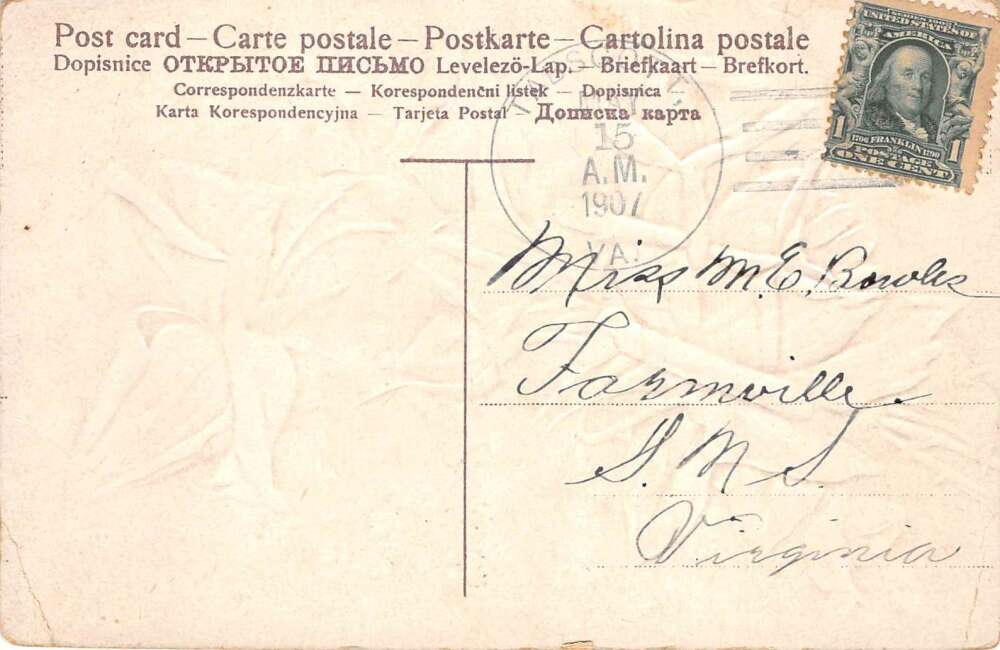 Post card – Carte postale – Postkarte – Cartolina postale
Dopisnice ОТКРЫТОЕ ПИСЬМО Levelezö-Lap. – Briefkaart – Brefkort.
Correspondenzkarte – Korespondenční listek – Dopisnica –
Karta Korespondencyjna – Tarjeta Postal – Дописна карта
SERIES 1902
UNITED STATES OF
AMERICA
1706 FRANKLIN 1790
1 POSTAGE 1
ONE CENT
MAY
15
A.M.
1907
VA.
Miss M.E. Bowles
Farmville.
S. N. S.
Virginia